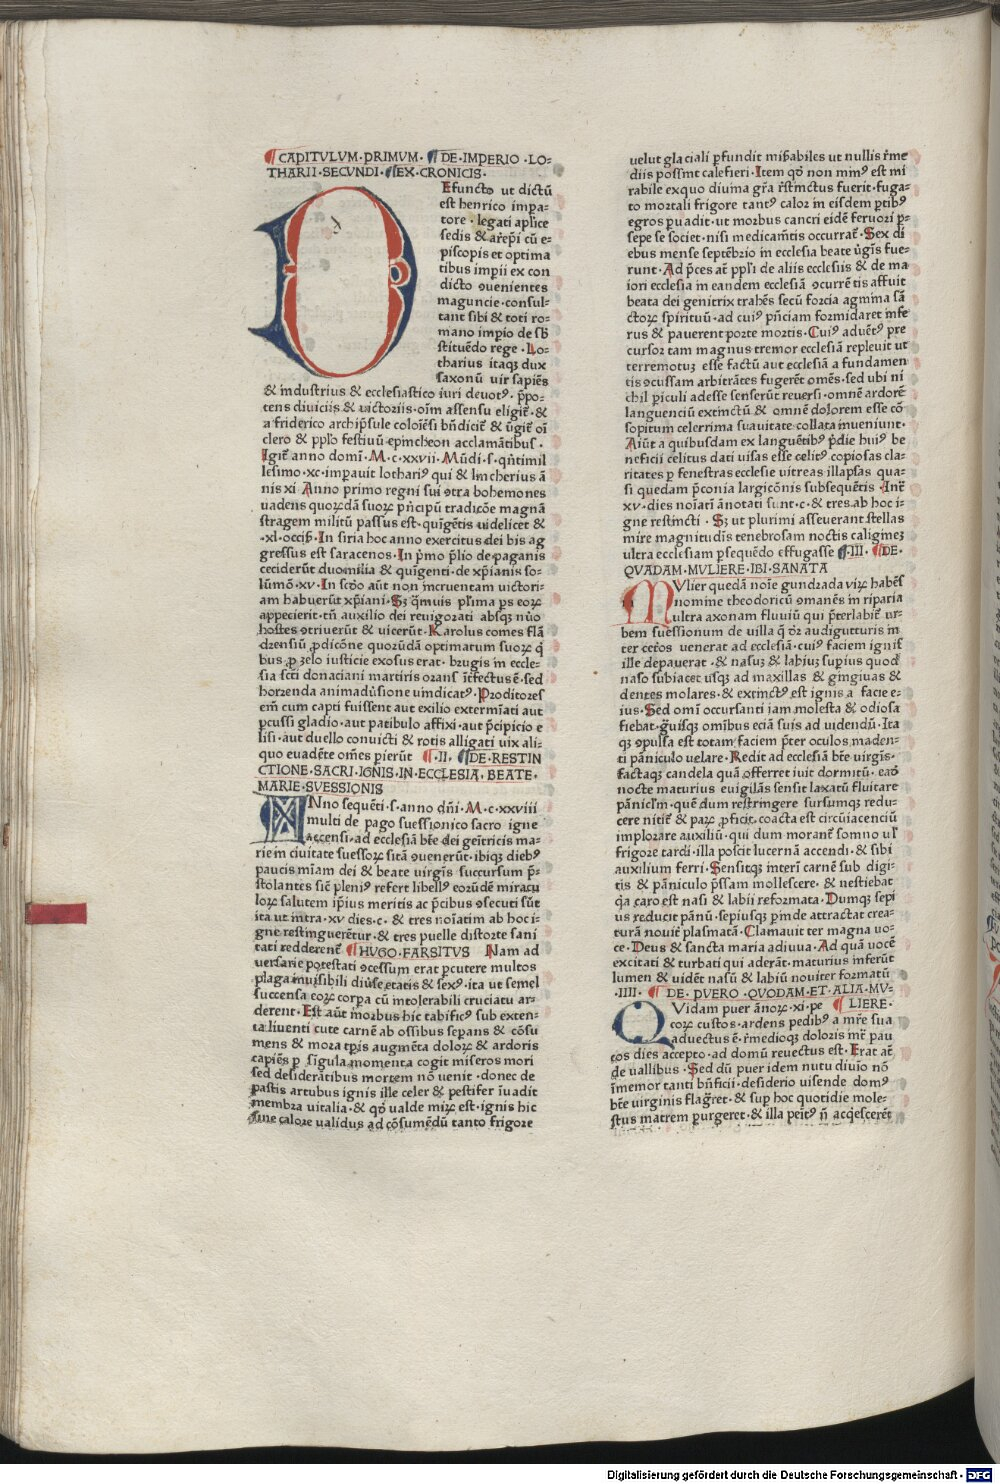 CAPITVLVM·PRIMVM· DE·IMPERIO·LO-
THARII·SECVNDI· EX·CRONICIS·
DEfuncto ut dictū
est henrico impa-
tore·legati aplice
sedis & arepi cū e-
piscopis et optima
tibus impii ex con
dicto ꝯuenientes
maguncie·consul-
tant sibi & toti ro-
mano impio de sb
stituēdo rege·Lo-
tharius itaqꝫ dux
saxonū uir sapiēs
& industrius & ecclesiastico iuri deuotꝰ·p̄po-
tens diuiciis & uictoriis·oīm assensu eligit̄·&
a friderico archip̄sule coloiēsi bn̄dicit̄ & ūgit̄ oī
clero & pplo festiuū epincheon acclamātibus·
Igit̄ anno domī·M·c·xxvii·Mūdi·s·qn̄timil
lesimo·xc·impauit lothariꝰ qui & lincherius ā
nis xi·Anno primo regni sui ꝯtra bohemones
uadens quoꝝdā suoꝝ pn̄cipū tradicōe magnā
stragem militū passus est·quīgētis uidelicet &
·xl·occiß·In siria hoc anno exercitus dei bis ag
gressus est saracenos·In p̄mo p̄lio de paganis
ceciderūt duomilia & quīgenti·de xp̄ianis so-
lūmō·xv·In scd̄o aūt non incruentam uictori-
am habuerūt xp̄iani·Sꝫ q̄muis pl̄ima ps eoꝝ
appecierit·tn̄ auxilio dei reuigorati absqꝫ nūo
hostes ꝯtriuerūt & uicerūt·Karolus comes flā
drensiū ꝓdicōne quoꝝūdā optimatum suoꝝ q̄
bus ꝓ zelo iusticie exosus erat·brugis in eccle-
sia scti donaciani martiris orans īt̄fectus ē·sed
horrenda animadūsione uindicatꝰ·Proditores
em̄ cum capti fuissent aut exilio extermīati aut
pcussi gladio·aut patibulo affixi·aut p̄cipicio e
lisi·aut duello conuicti & rotis alligati uix ali-
quo euadēte om̄es pierūt ·II· DE·RESTIN
CTIONE·SACRI·IGNIS·IN·ECCLESIA·BEATE·
MARIE·SVESSIONIS
ANno sequēti·s·anno dn̄i·M·c·xxviii
multi de pago suessionico sacro igne
accensi·ad ecclesiā bt̄e dei geīt̄ricis ma-
rie in ciuitate suessoꝝ sitā ꝯuenerūt·ibiqꝫ diebꝰ
paucis miam dei & beate uirgīs succursum p̄-
stolantes sic̄ pleniꝰ refert libellꝰ eorūdē miracu
loꝝ salutem ip̄ius meritis ac p̄cibus ꝯsecuti sūt
ita ut intra·xv dies·c·& tres noīatim ab hoc i-
gne restinguerētur·& tres puelle distorte sani
tati redderent̄ HVGO·FARSITVS Nam ad
uersarie potestati ꝯcessum erat pcutere multos
plaga inuisibili diūse etatis & sexꝰ·ita ut semel
succensa eoꝝ corpa cū intolerabili cruciatu ar-
derent·Est aūt morbus hic tabificꝰ sub exten-
ta liuenti cute carnē ab ossibus sepans & cōsu
mens & mora tp̄is augmēta doloꝝ & ardoris
capiēs p sīgula momenta cogit miseros mori
sed desiderātibus mortem nō uenit·donec de
pastis artubus ignis ille celer & pestifer īuadit
membra uitalia·& qō ualde miꝝ est·ignis hic
sine calore ualidus ad cōsumēdū tanto frigore
uelut glaciali pfundit mißabiles ut nullis r̄me
diis possint calefieri·Item qō non minꝰ est mi
rabile exquo diuina gr̄a r̄stinctus fuerit·fuga-
to mortali frigore tantꝰ calor in eisdem ptibꝰ
egros puadit·ut morbus cancri eidē feruori p-
sepe se societ·nisi medicam̄tis occurrat̄·Sex di
ebus mense septēbrio in ecclesia beate ūgīs fue-
runt·Ad p̄ces at̄ ppl̄i de aliis ecclesiis & de ma
iori ecclesia in eandem ecclesiā ꝯcurrētis affuit
beata dei genitrix trahēs secū forcia agmina sā
ctoꝝ spirituū·ad cuiꝰ pn̄ciam formidaret infe
rus & pauerent porte mortis·Cuiꝰ aduētꝰ pre
cursor tam magnus tremor ecclesiā repleuit ut
terremotus esse factū aut ecclesiā a fundamen
tis ꝯcussam arbitrātes fugerēt om̄es·sed ubi ni
chil piculi adesse senserūt reuersi·omnē ardorē
languenciū extinctū & omnē dolorem esse cō
sopitum celerrima suauitate collata inueniunt·
Aiūt a quibusdam ex languētibꝰ p̄die huiꝰ be
neficii celitus dati uisas esse celitꝰ copiosas cla-
ritates p fenestras ecclesie uitreas illapsas qua-
si quedam p̄conia largicōnis subsequētis·Int̄
xv·dies noīati ānotati sunt·c·& tres·ab hoc i-
gne restincti·Sꝫ ut plurimi asseuerant stellas
mire magnitudīs tenebrosam noctis caliginem
ultra ecclesiam psequēdo effugasse ·III· DE·
QVADAM·MVLIERE·IBI·SANATA
MVlier quedā noīe gundrada viꝝ habēs
nomine theodoricū ꝯmanēs in riparia
ultra axonam fluuiū qui p̄terlabit̄ ur-
bem suessionum de uilla q̄ dr̄ audigutturis in
ter cet̄os venerat ad ecclesiā·cuiꝰ faciem ignis
ille depauerat·& nasus & labius supius quod
naso subiacet usqꝫ ad maxillas & gingiuas &
dentes molares·& extinctꝰ est ignis a facie e-
ius·Sed omī occursanti iam molesta & odiosa
fiebat·ḡuisqꝫ omībus eciā suis ad uidendū·Ita
qꝫ ꝯpulsa est totam faciem p̄ter oculos maden-
ti pāniculo uelare·Redit ad ecclesiā bt̄e uirgīs·
factaqꝫ candela quā offerret iuit dormitū·eaō
nocte maturius euigilās sensit laxatū fluitare
pānicl̄m·quē dum restringere sursumqꝫ redu-
cere nitit̄ & paꝝ ꝓficit·coacta est circūiacenciū
implorare auxiliū·qui dum morant̄ somno ul̄
frigore tardi·illa poscit lucernā accendi·& sibi
auxilium ferri·Sensitqꝫ interī carnē sub digi-
tis & pāniculo p̄ssam mollescere·& nestiebat
q̄a caro est nasi & labii reformata·Dumqꝫ sepi
us reducit pānū·sepiusqꝫ pinde attractat crea-
turā nouit̄ plasmatā·Clamauit ter magna uo-
ce·Deus & sancta maria adiuua·Ad quā uocē
excitati & turbati qui aderāt·maturius inferūt
lumen & uidēt nasū & labiū nouiter formatū
·IIII· DE·PVERO·QVODAM·ET·ALIA·MV-
QVidam puer ānoꝝ·xi·pe LIERE·
coꝝ custos·ardens pedibꝰ a mr̄e sua
aduectus ē·r̄medioqꝫ doloris mr̄t pau
cos dies accepto·ad domū reuectus est·Erat at̄
de uallibus·Sed dū puer idem nutu diuio nō
īmemor tanti bn̄ficii·desiderio uisende domꝰ
bt̄e uirginis flagr̄et·& sup hoc quotidie mole-
stus matrem purgeret·& illa peitꝰ n̄ acq̄escerēt
Digitalisierung gefördert durch die Deutsche Forschungsgemeinschaft · DFG